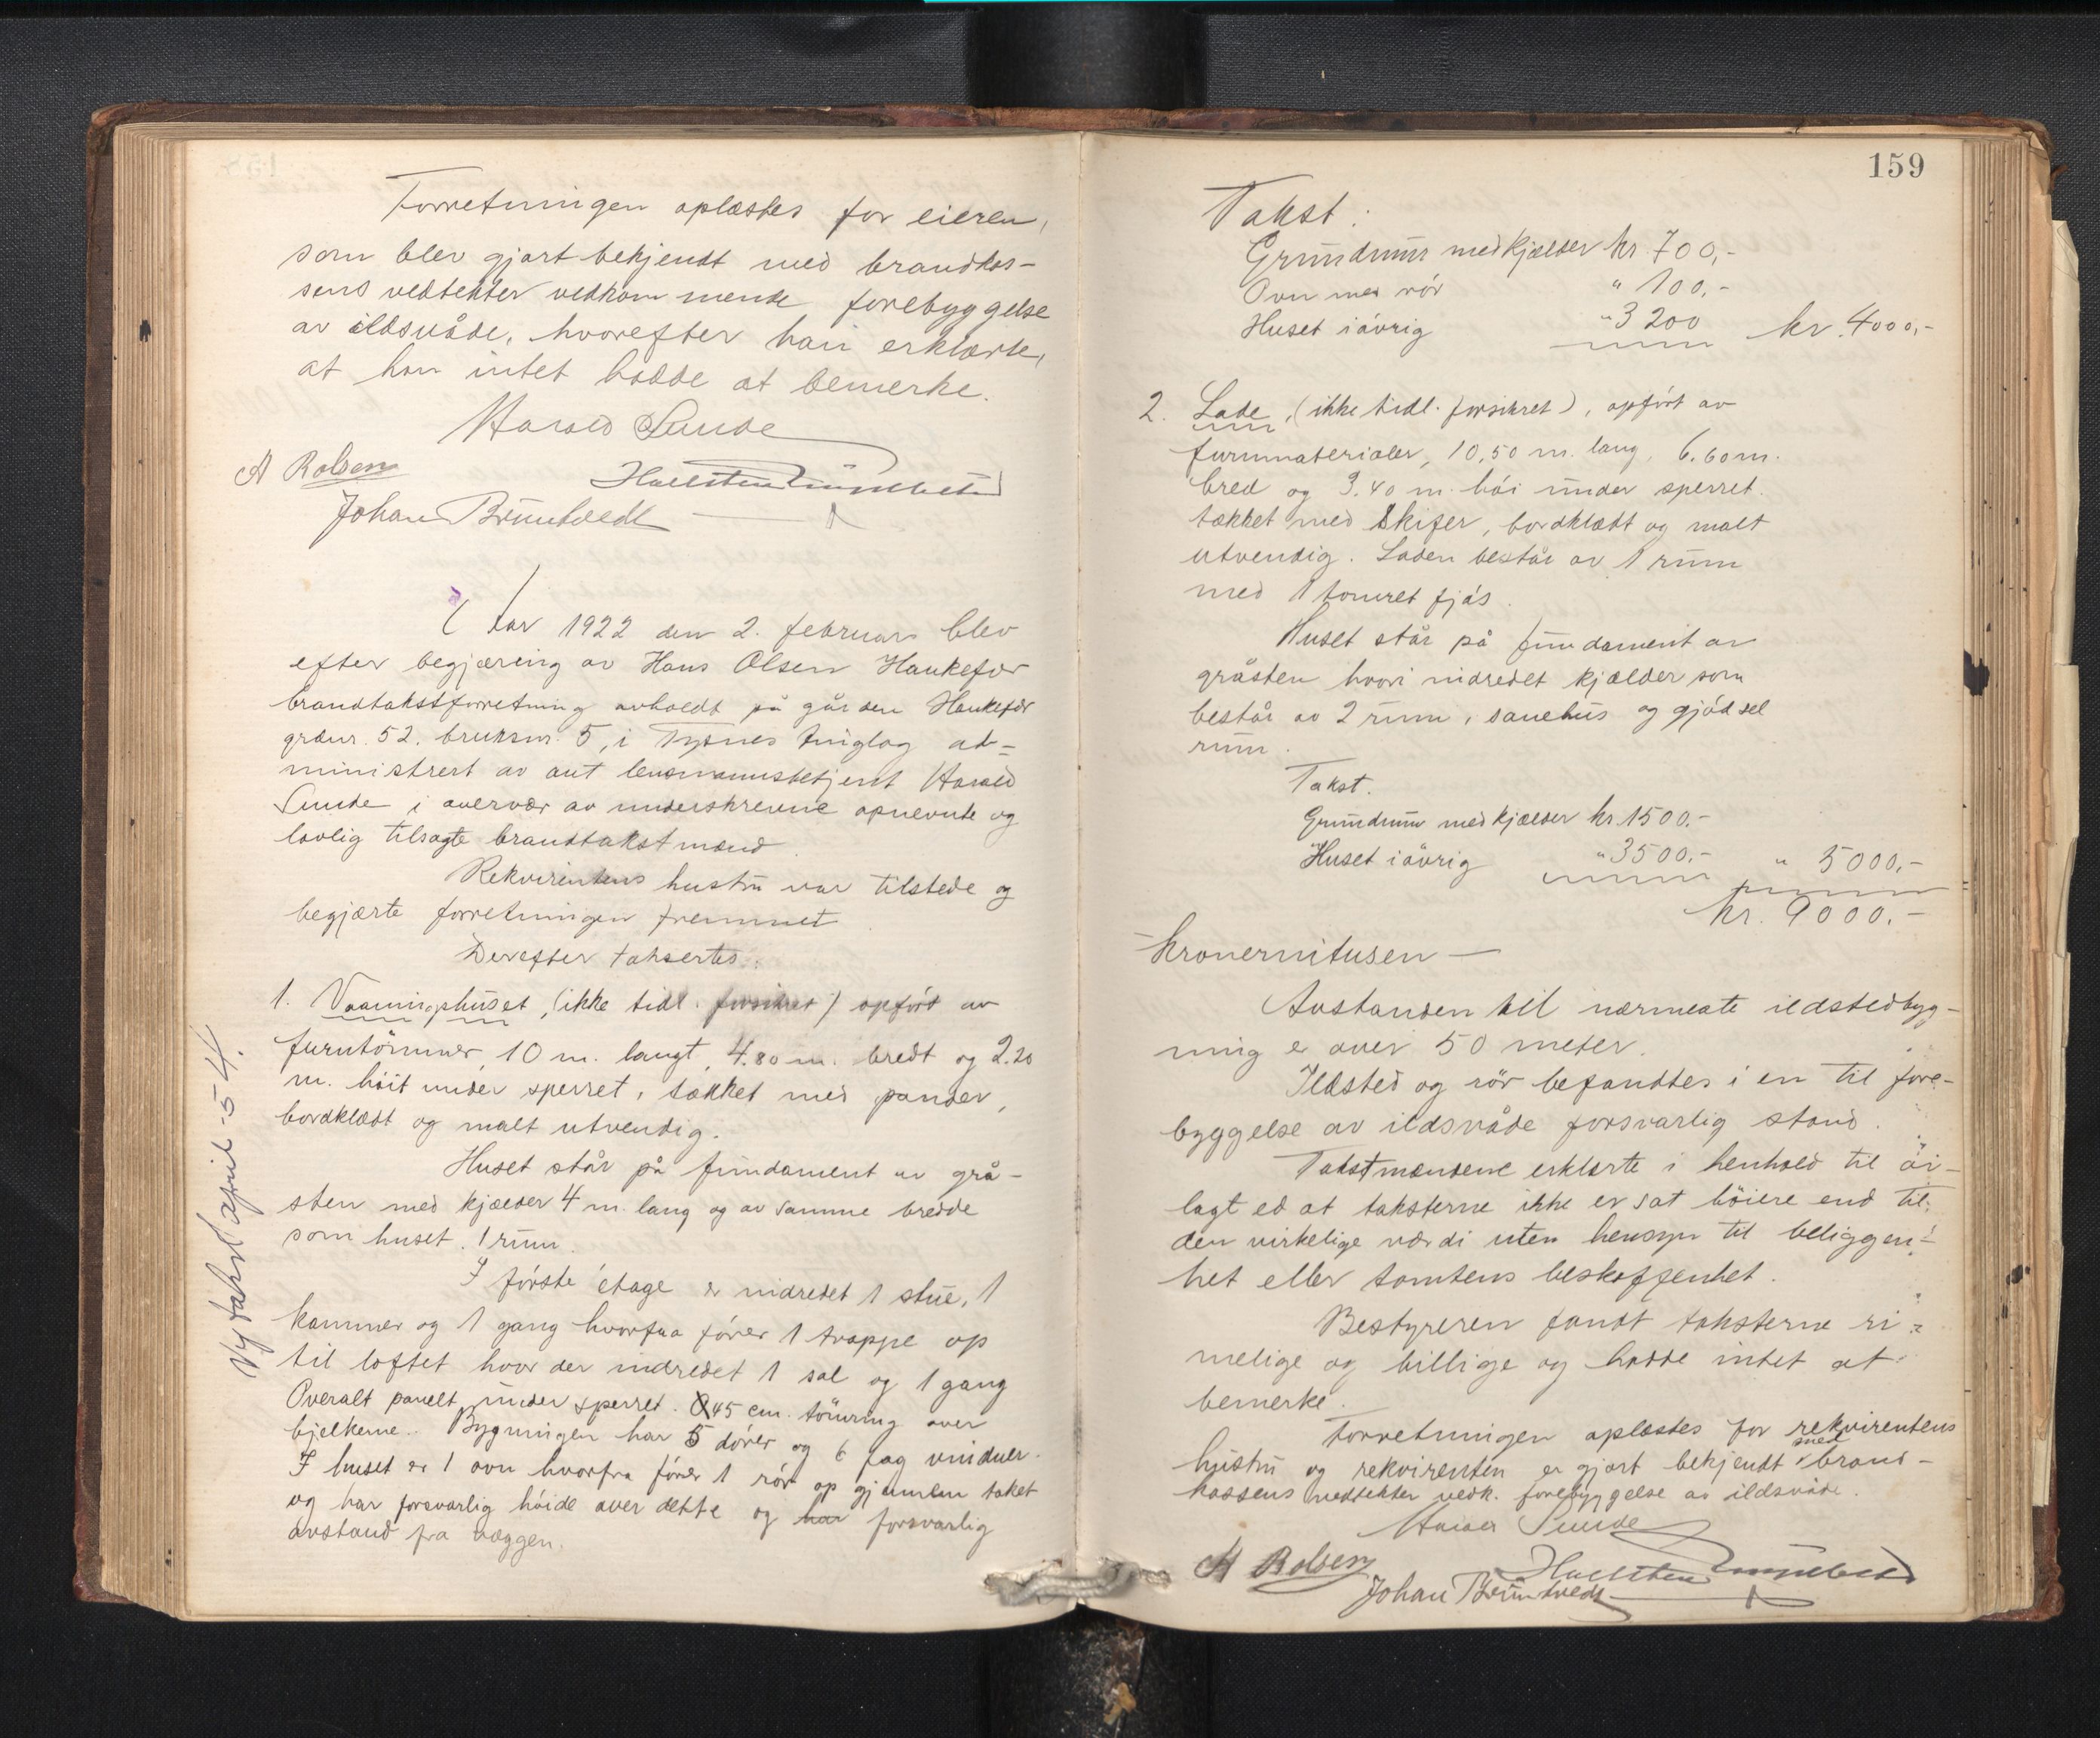 Forretningen oplæstes for eieren,
som blev gjort bekjendt med brandkas-
sens vedtekter vedkommende forebyggelse
av ildsvåde, hvorefter han erklærte,
at han intet hadde at bemerke.
Harald Sunde
A Rolsen
Johan Brúntvedt
År 1922 den 2. februar blev
efter begjæring av Hans Olsen Haukefær
brandtakstforretning avholdt på gården Haukefær
grdnr. 52. bruksnr. 5, i Tysnes tinglag ad-
ministrert av aut lensmannsbetjent Harald
Sunde i overvær av underskrevne opnevnte og
lovlig tilsagte brandtakstmænd.
Rekvirentens hustrú var tilstede og
begjærte forretningen fremmet.
Derefter taksertes:
1. Vaaningshúset, (ikke tidl. forsikret) opfört av
furutömmer, 10 m. langt, 4.80 m. bredt og 2.20
m. höit under sperret, tækket med pander,
bordklædt og malt utvendig.
Huset står på fúndament av grå-
sten med kjælder 4 m. lang og av samme bredde
som huset. 1 rúm.
I förste étage er indredet 1 stúe, 1
kammer og 1 gang hvorfra förer 1 trappe op
til loftet hvor der indredet 1 sal og 1 gang
Overalt panelt únder sperret. 45 cm. tömring over
bjelkerne. Bygningen har 5 dörer og 6 fag vinduer.
I huset er 1 ovn hvorfra förer 1 rör op gjennem taket
og har forsvarlig höide over dette og har forsvarlig
avstand fra væggen.
Ny takst april -54.
159
Takst:
Grúndmúr med kjælder kr 700,-
Ovn med rör " 100,-
Huset i övrig " 3200 kr. 4000,-
2. Lade, (ikke tidl. forsikret), opfört av
furumaterialer, 10,50 m. lang, 6.60 m.
bred og 3.40 m. höi únder sperret.
tækket med Skifer, bordklædt og malt
utvendig. Laden består av 1 rúm
med 1 tömret fjös.
Huset står på fúndament av
gråsten hvori indredet kjælder som
består av 2 rúm, sauehús og gjödsel
rúm.
Takst.
Grúndmúr med kjælder kr. 1500.-
Huset i övrig " 3500.- " 5000,-
kr. 9000.-
- kronernitusen -
Avstanden til nærmeste ildstedbyg-
ning er over 50 meter.
Ildsted og rör befandtes i en til fore-
byggelse av ildsvåde forsvarlig stand.
Takstmændene erklærte i henhold til av-
lagt ed at taksterne ikke er sat höiere end til
den virkelige værdi uten hensyn til beliggen-
het eller tomtens beskaffenhet.
Bestyreren fandt taksterne ri-
melige og billige og hadde intet at
bemerke.
Forretningen oplæstes for rekvirentens
hústrú og rekvirenten er gjort bekjendt med brand-
kassens vedtekter vedk. forebyggelse av ildsvåde.
Harald Sunde
A Rolsen
Johan Brúntvedt